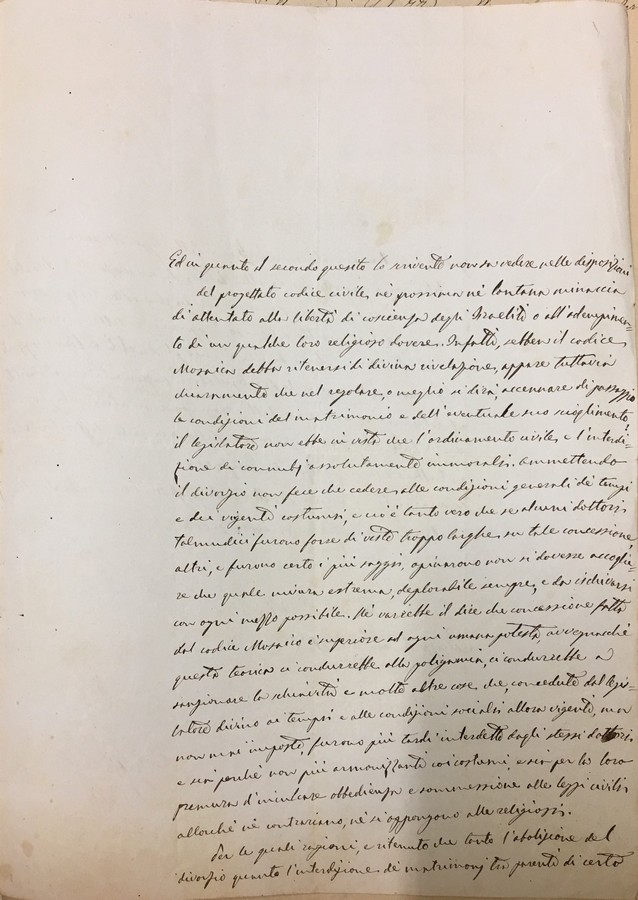 Ed in quanto al secondo quesito lo scrivente non sa vedere nelle disposizioni
del progettato codice civile, nè prossima nè lontana minaccia
di attentato alla libertà di coscienza degli Israeliti o all'adempimen=
to di un qualche loro religioso dovere. Infatti, sebben il codice
Mosaico debba ritenersi di divina rivelazione, appare tuttavia
chiaramente che nel regolare, o meglio si dirà, accennare di passaggio
le condizioni del matrimonio e dell'eventuale suo scioglimento,
il legislatore non ebbe in vista che l'ordinamento civile, e l'interdi=
zione di connubj assolutamente immorali. Ammettendo
il divorzio non fece che cedere alle condizioni generali de' tempi
e dei vigenti costumi, e ciò è tanto vero che se alcuni dottori
talmudici furono forse di viste troppo larghe su tale concessione,
altri, e furono certo i più saggi, opinarono non si dovesse accoglie=
re che quale misura estrema, deplorabile sempre, e da ischivarsi
con ogni mezzo possibile. Nè varrebbe il dire che concessione fatta
dal codice Mosaico è superiore ad ogni umana potestà, avvegnachè
questa teorica ci condurrebbe alla poligamia, ci condurrebbe a
sanzionare la schiavitù e molte altre cose che, concedute dal legis=
latore divino ai tempi e alle condizioni sociali allora vigenti, ma
non mai imposte, furono più tardi interdette dagli stessi dottori,
e sia perchè non più armonizzanti coi costumi, e sia per la loro
premura d'inculcare obbedienza e sommessione alle leggi civili
allorchè nè contrariano, nè si oppongono alle religiose.
Per le quali ragioni, e ritenuto che tanto l'abolizione del
divorzio quanto l'interdizione de' matrimonj tra parenti di certo